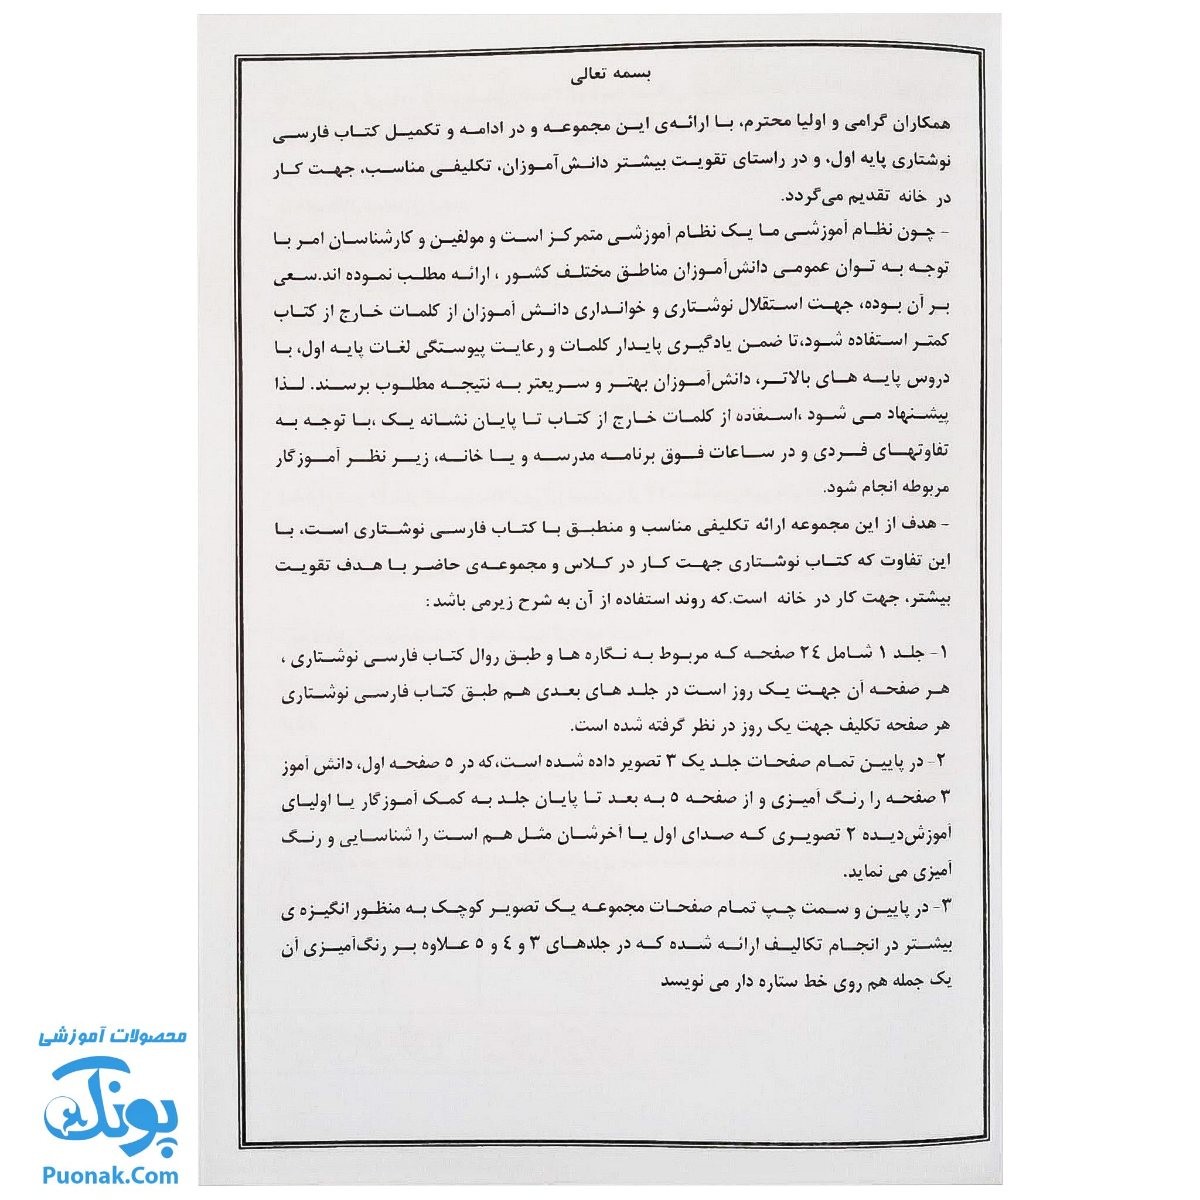 بسمه تعالی
همکاران گرامی و اولیا محترم، با ارائه‌ی این مجموعه و در ادامه و تکمیل کتاب فارسی
نوشتاری پایه اول، و در راستای تقویت بیشتر دانش‌آموزان، تکلیفی مناسب، جهت کار
در خانه تقدیم می‌گردد.
- چون نظام آموزشی ما یک نظام آموزشی متمرکز است و مولفین و کارشناسان امر با
توجه به توان عمومی دانش‌آموزان مناطق مختلف کشور ، ارائه مطلب نموده اند.سعی
بر آن بوده، جهت استقلال نوشتاری و خوانداری دانش آموزان از کلمات خارج از کتاب
کمتر استفاده شود،تا ضمن یادگیری پایدار کلمات و رعایت پیوستگی لغات پایه اول، با
دروس پایه های بالاتر، دانش‌آموزان بهتر و سریعتر به نتیجه مطلوب برسند. لذا
پیشنهاد می شود ،استفاده از کلمات خارج از کتاب تا پایان نشانه یک ،با توجه به
تفاوتهای فردی و در ساعات فوق برنامه مدرسه و یا خانه، زیر نظر آموزگار
مربوطه انجام شود.
- هدف از این مجموعه ارائه تکلیفی مناسب و منطبق با کتاب فارسی نوشتاری است، با
این تفاوت که کتاب نوشتاری جهت کار در کلاس و مجموعه‌ی حاضر با هدف تقویت
بیشتر، جهت کار در خانه است.که روند استفاده از آن به شرح زیرمی باشد:
۱- جلد ۱ شامل ۲۴ صفحه که مربوط به نگاره ها و طبق روال کتاب فارسی نوشتاری ،
هر صفحه آن جهت یک روز است در جلد های بعدی هم طبق کتاب فارسی نوشتاری
هر صفحه تکلیف جهت یک روز در نظر گرفته شده است.
۲- در پایین تمام صفحات جلد یک ۳ تصویر داده شده است،که در ۵ صفحه اول، دانش آموز
۳ صفحه را رنگ آمیزی و از صفحه ۵ به بعد تا پایان جلد به کمک آموزگار یا اولیای
آموزش‌دیده ۲ تصویری که صدای اول یا آخرشان مثل هم است را شناسایی و رنگ
آمیزی می نماید.
۳- در پایین و سمت چپ تمام صفحات مجموعه یک تصویر کوچک به منظور انگیزه ی
بیشتر در انجام تکالیف ارائه شده که در جلدهای ۳ و ۴ و ۵ علاوه بر رنگ‌آمیزی آن
یک جمله هم روی خط ستاره دار می نویسد
محصولات آموزشی
پونک
Puonak.Com